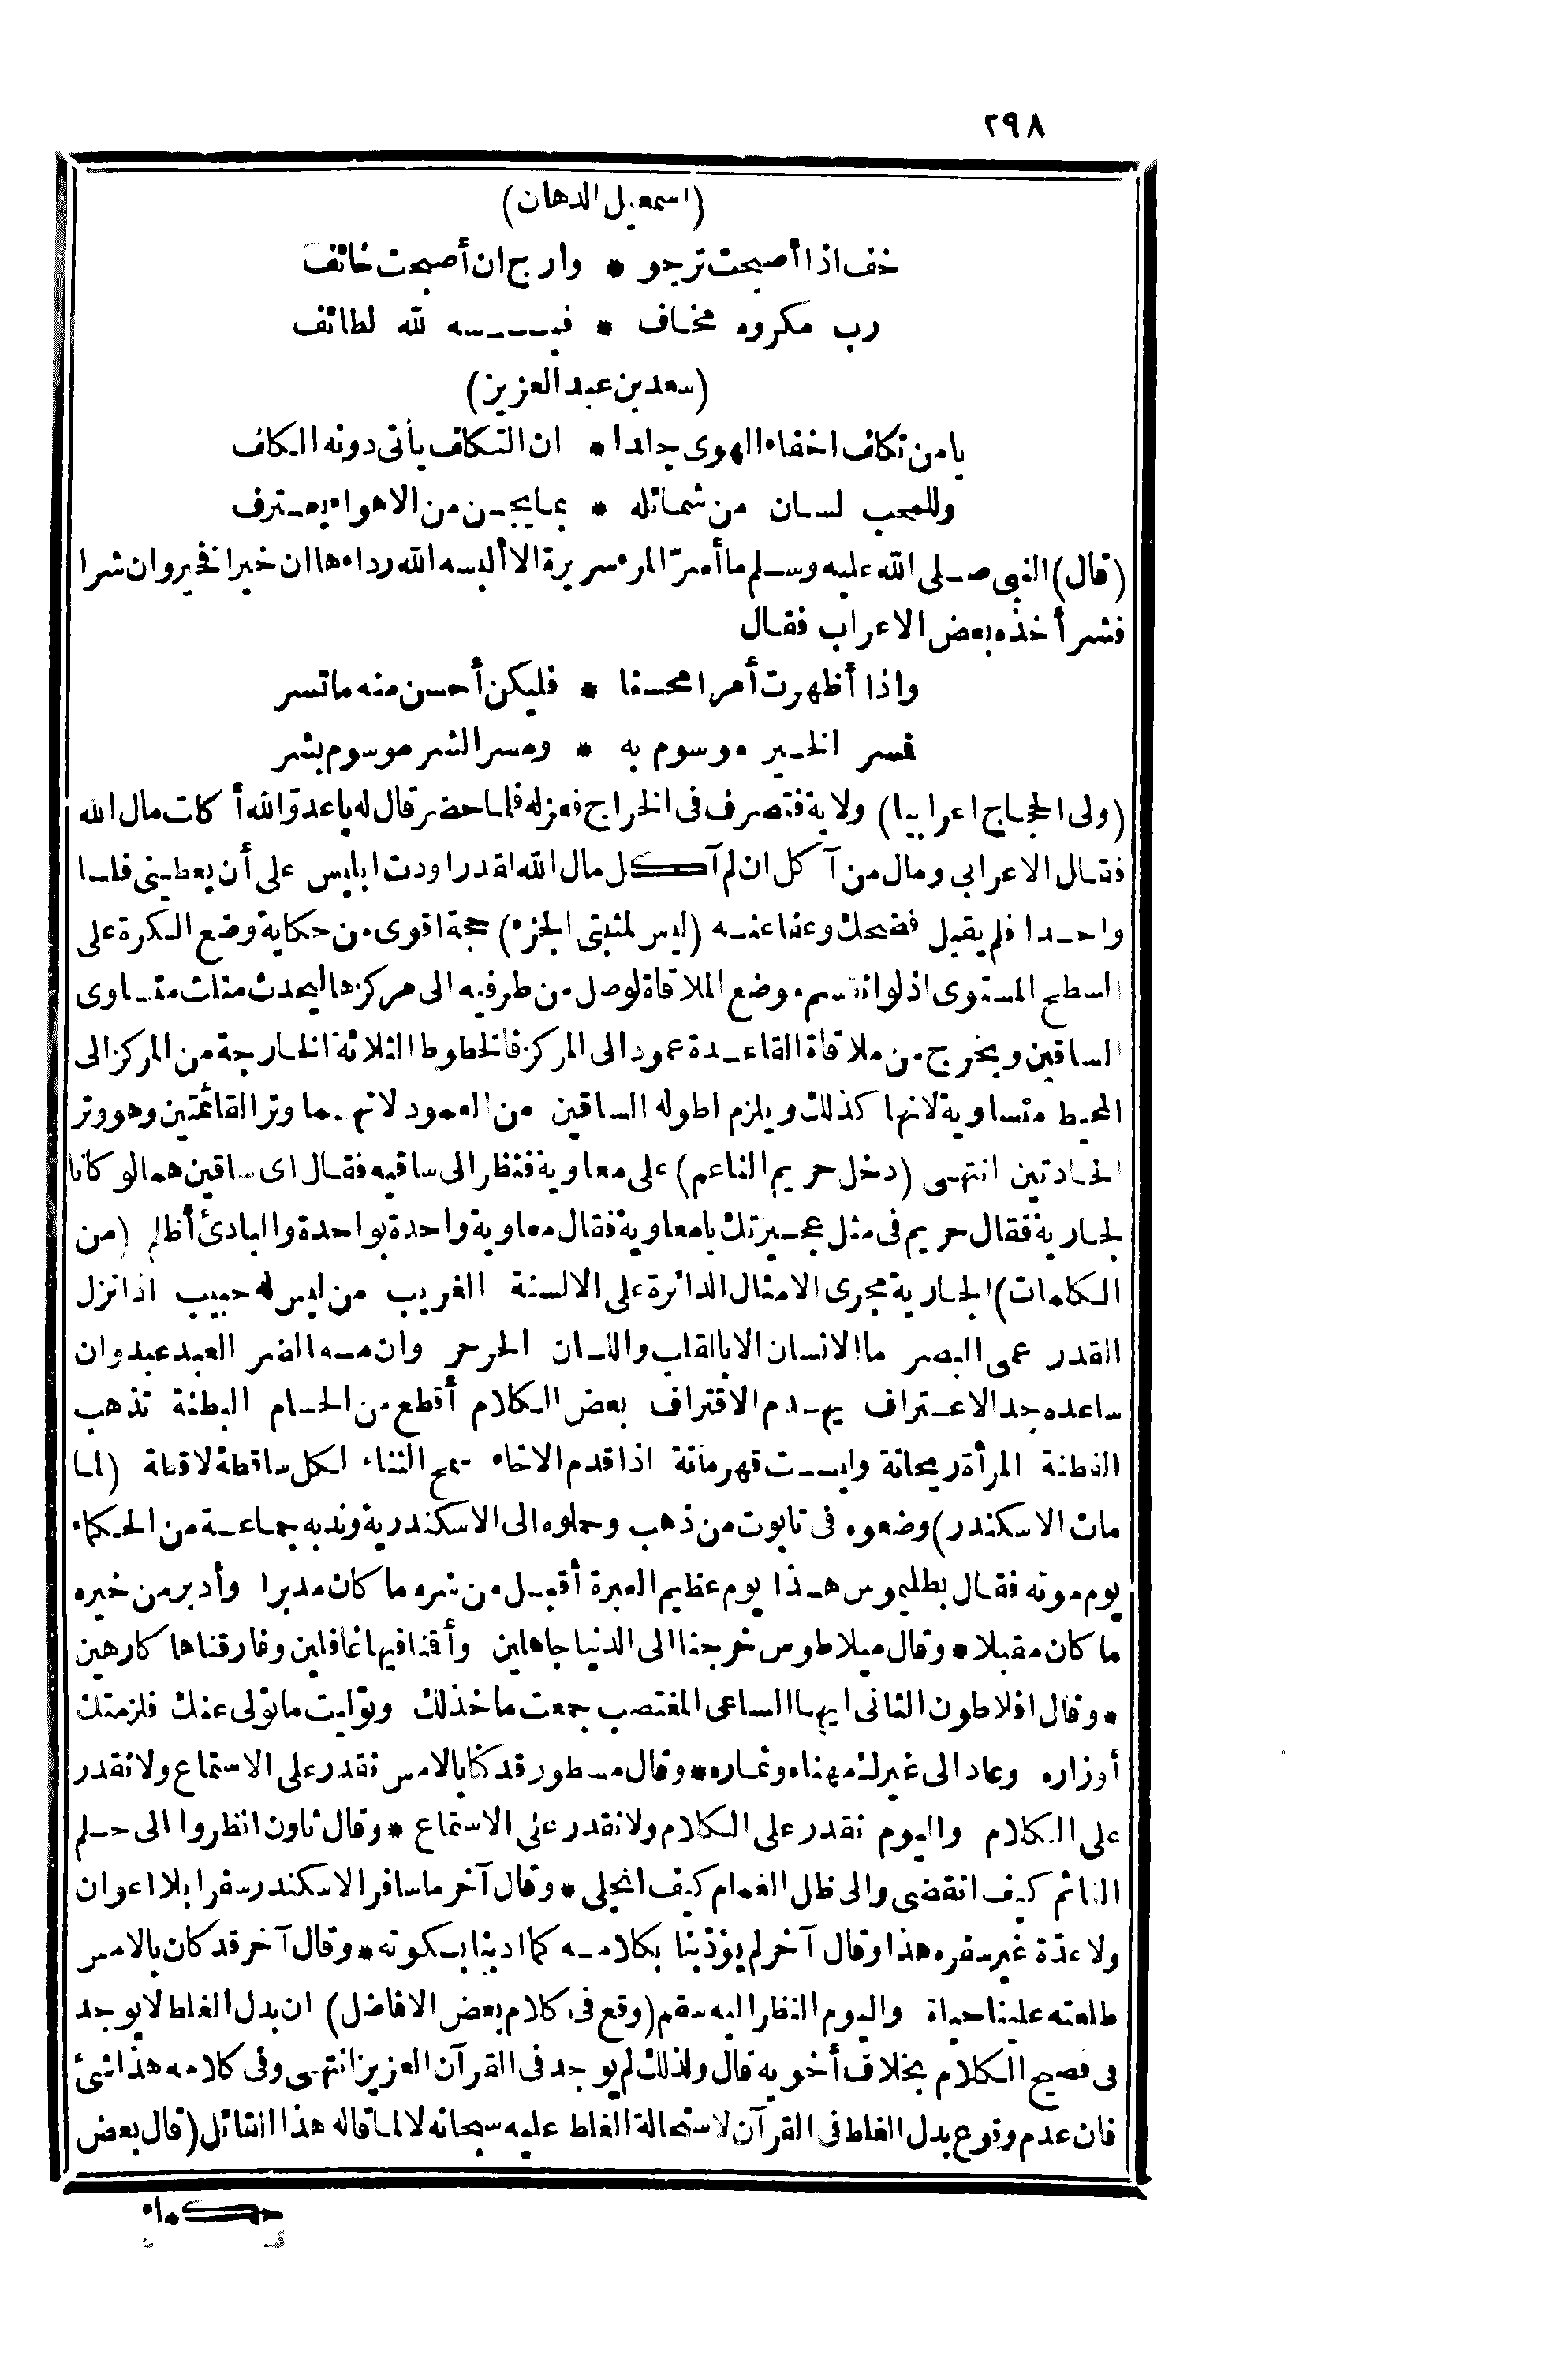 ٢٩٨
(اسمعيل الدهان)
خف اذا أصبحت ترجو * وارج ان أصبحت خائف
رب مكروه مخاف * فيه لله لطائف
(سعد بن عبد العزيز)
يا من تكلف اخفاء الهوى جلدا * ان التكلف يأتى دونه الكلف
وللمحب لسان من شمائله * بما يجن من الاهواء يعترف
(قال) النبى صلى الله عليه وسلم ما أسرّ المرء سريرة الا ألبسه الله رداءها ان خيرا فخير وان شرا
فشر أخذه بعض الاعراب فقال
واذا أظهرت أمرا محسنا * فليكن أحسن منه ما تسر
فمسر الخير موسوم به * ومسر الشر موسوم بشر
(ولى الحجاج اعرابيا) ولاية فتصرف فى الخراج فعزله فلما حضر قال له يا عدوّ الله أكلت مال الله
فقال الاعرابي ومال من آكل ان لم آكل مال الله لقد راودت ابليس على أن يعطينى فلسا
واحدا فلم يقبل فضحك وعفا عنه (ليس لمثبتى الجزء) حجة اقوى من حكاية وضع الكرة على
السطح المستوى اذ لو انقسم موضع الملاقاة لوصل من طرفيه الى مركزها ليحدث مثلث متساوى
الساقين ويخرج من ملاقاة القاعدة عمود الى المركز فالخطوط الثلاثة الخارجة من المركز الى
المحيط متساوية لانها كذلك ويلزم اطوله الساقين من العمود لانهما وتر القائمتين وهو وتر
الحادتين انتهى (دخل حريم الناعم) على معاوية فنظر الى ساقيه فقال اى ساقين هما لو كانا
لجارية فقال حريم فى مثل عجيزتك يا معاوية فقال معاوية واحدة بواحدة والبادئ أظلم (من
الكلمات) الجارية مجرى الامثال الدائرة على الالسنة الغريب من ليس له حبيب اذا نزل
القدر عمى البصر ما الانسان الا بالقلب واللسان الحر حر وان مسه الضر العبد عبد وان
ساعده جد الاعتراف يهدم الاقتراف بعض الكلام أقطع من الحسام البطنة تذهب
الفطنة المرأة ريحانة وليست قهرمانة اذا قدم الاخاء سمج الثناء لكل ساقطة لاقطة (لما
مات الاسكندر) وضعوه فى تابوت من ذهب وحملوه الى الاسكندرية وندبه جماعة من الحكماء
يوم موته فقال بطليموس هذا يوم عظيم العبرة أقبل من شره ما كان مدبرا وأدبر من خيره
ما كان مقبلا * وقال ميلاطوس خرجنا الى الدنيا جاهلين وأقمنا فيها غافلين وفارقناها كارهين
* وقال افلاطون الثانى ايها الساعى المغتصب جمعت ما خذلك وتوليت ما تولى عنك فلزمتك
أوزاره وعاد الى غيرك مهناه وثماره * وقال مسطور قد كنا بالامس نقدر على الاستماع ولا نقدر
على الكلام واليوم نقدر على الكلام ولا نقدر على الاستماع * وقال ثاون انظروا الى حلم
النائم كيف انقضى والى ظل الغمام كيف انجلى * وقال آخر ما سافر الاسكندر سفرا بلا اعوان
ولا عدّة غير سفره هذا وقال آخر لم يؤدّبنا بكلامه كما ادبنا بسكوته * وقال آخر قد كان بالامس
طلعته علينا حياة واليوم النظر اليه سقم (وقع فى كلام بعض الافاضل) ان بدل الغلط لا يوجد
فى فصيح الكلام بخلاف أخويه قال ولذلك لم يوجد فى القرآن العزيز انتهى وفى كلامه هذا شئ
فان عدم وقوع بدل الغلط فى القرآن لاستحالة الغلط عليه سبحانه لا لما قاله هذا القائل (قال بعض
حكماء